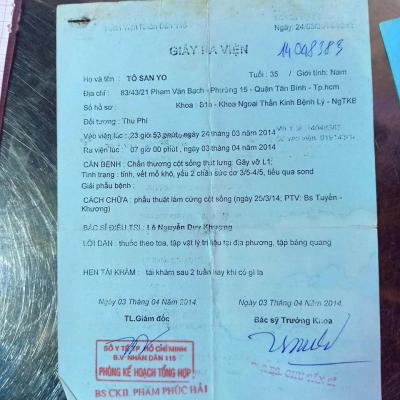 Bệnh viện Nhân Dân 115
Ngày: 24/03/2014
GIẤY RA VIỆN
14048383
Họ và tên : TÔ SAN YO Tuổi : 35 / Giới tính: Nam
Địa chỉ : 83/43/21 Phạm Văn Bạch - Phường 15 - Quận Tân Bình - Tp.hcm
Số hồ sơ : Khoa : B1a - Khoa Ngoại Thần Kinh Bệnh Lý - NgTKB
Đối tượng : Thu Phí
Vào viện lúc : 23 giờ 53 phút, ngày 24 tháng 03 năm 2014
Ra viện lúc : 07 giờ 00 phút, ngày 03 tháng 04 năm 2014
CĂN BỆNH : Chấn thương cột sống thắt lưng: Gãy vỡ L1;
Tình trạng : tỉnh, vết mổ khô, yếu 2 chân sức cơ 3/5-4/5, tiểu qua sond
Giải phẫu bệnh :
CÁCH CHỮA : phẫu thuật làm cứng cột sống (ngày 25/3/14; PTV: Bs Tuyển -
Khương)
BÁC SĨ ĐIỀU TRỊ : Lê Nguyễn Duy Khương
LỜI DẶN : thuốc theo toa, tập vật lý trị liệu tại địa phương, tập bàng quang
HẸN TÁI KHÁM : tái khám sau 2 tuần hay khi có gì lạ
Ngày 03 Tháng 04 Năm 2014
Ngày 03 Tháng 04 Năm 2014
TL.Giám đốc
Bác sỹ Trưởng Khoa
SỞ Y TẾ TP HỒ CHÍ MINH
B.V NHÂN DÂN 115
PHÒNG KẾ HOẠCH TỔNG HỢP
BS CKII. PHẠM PHÚC HẢI